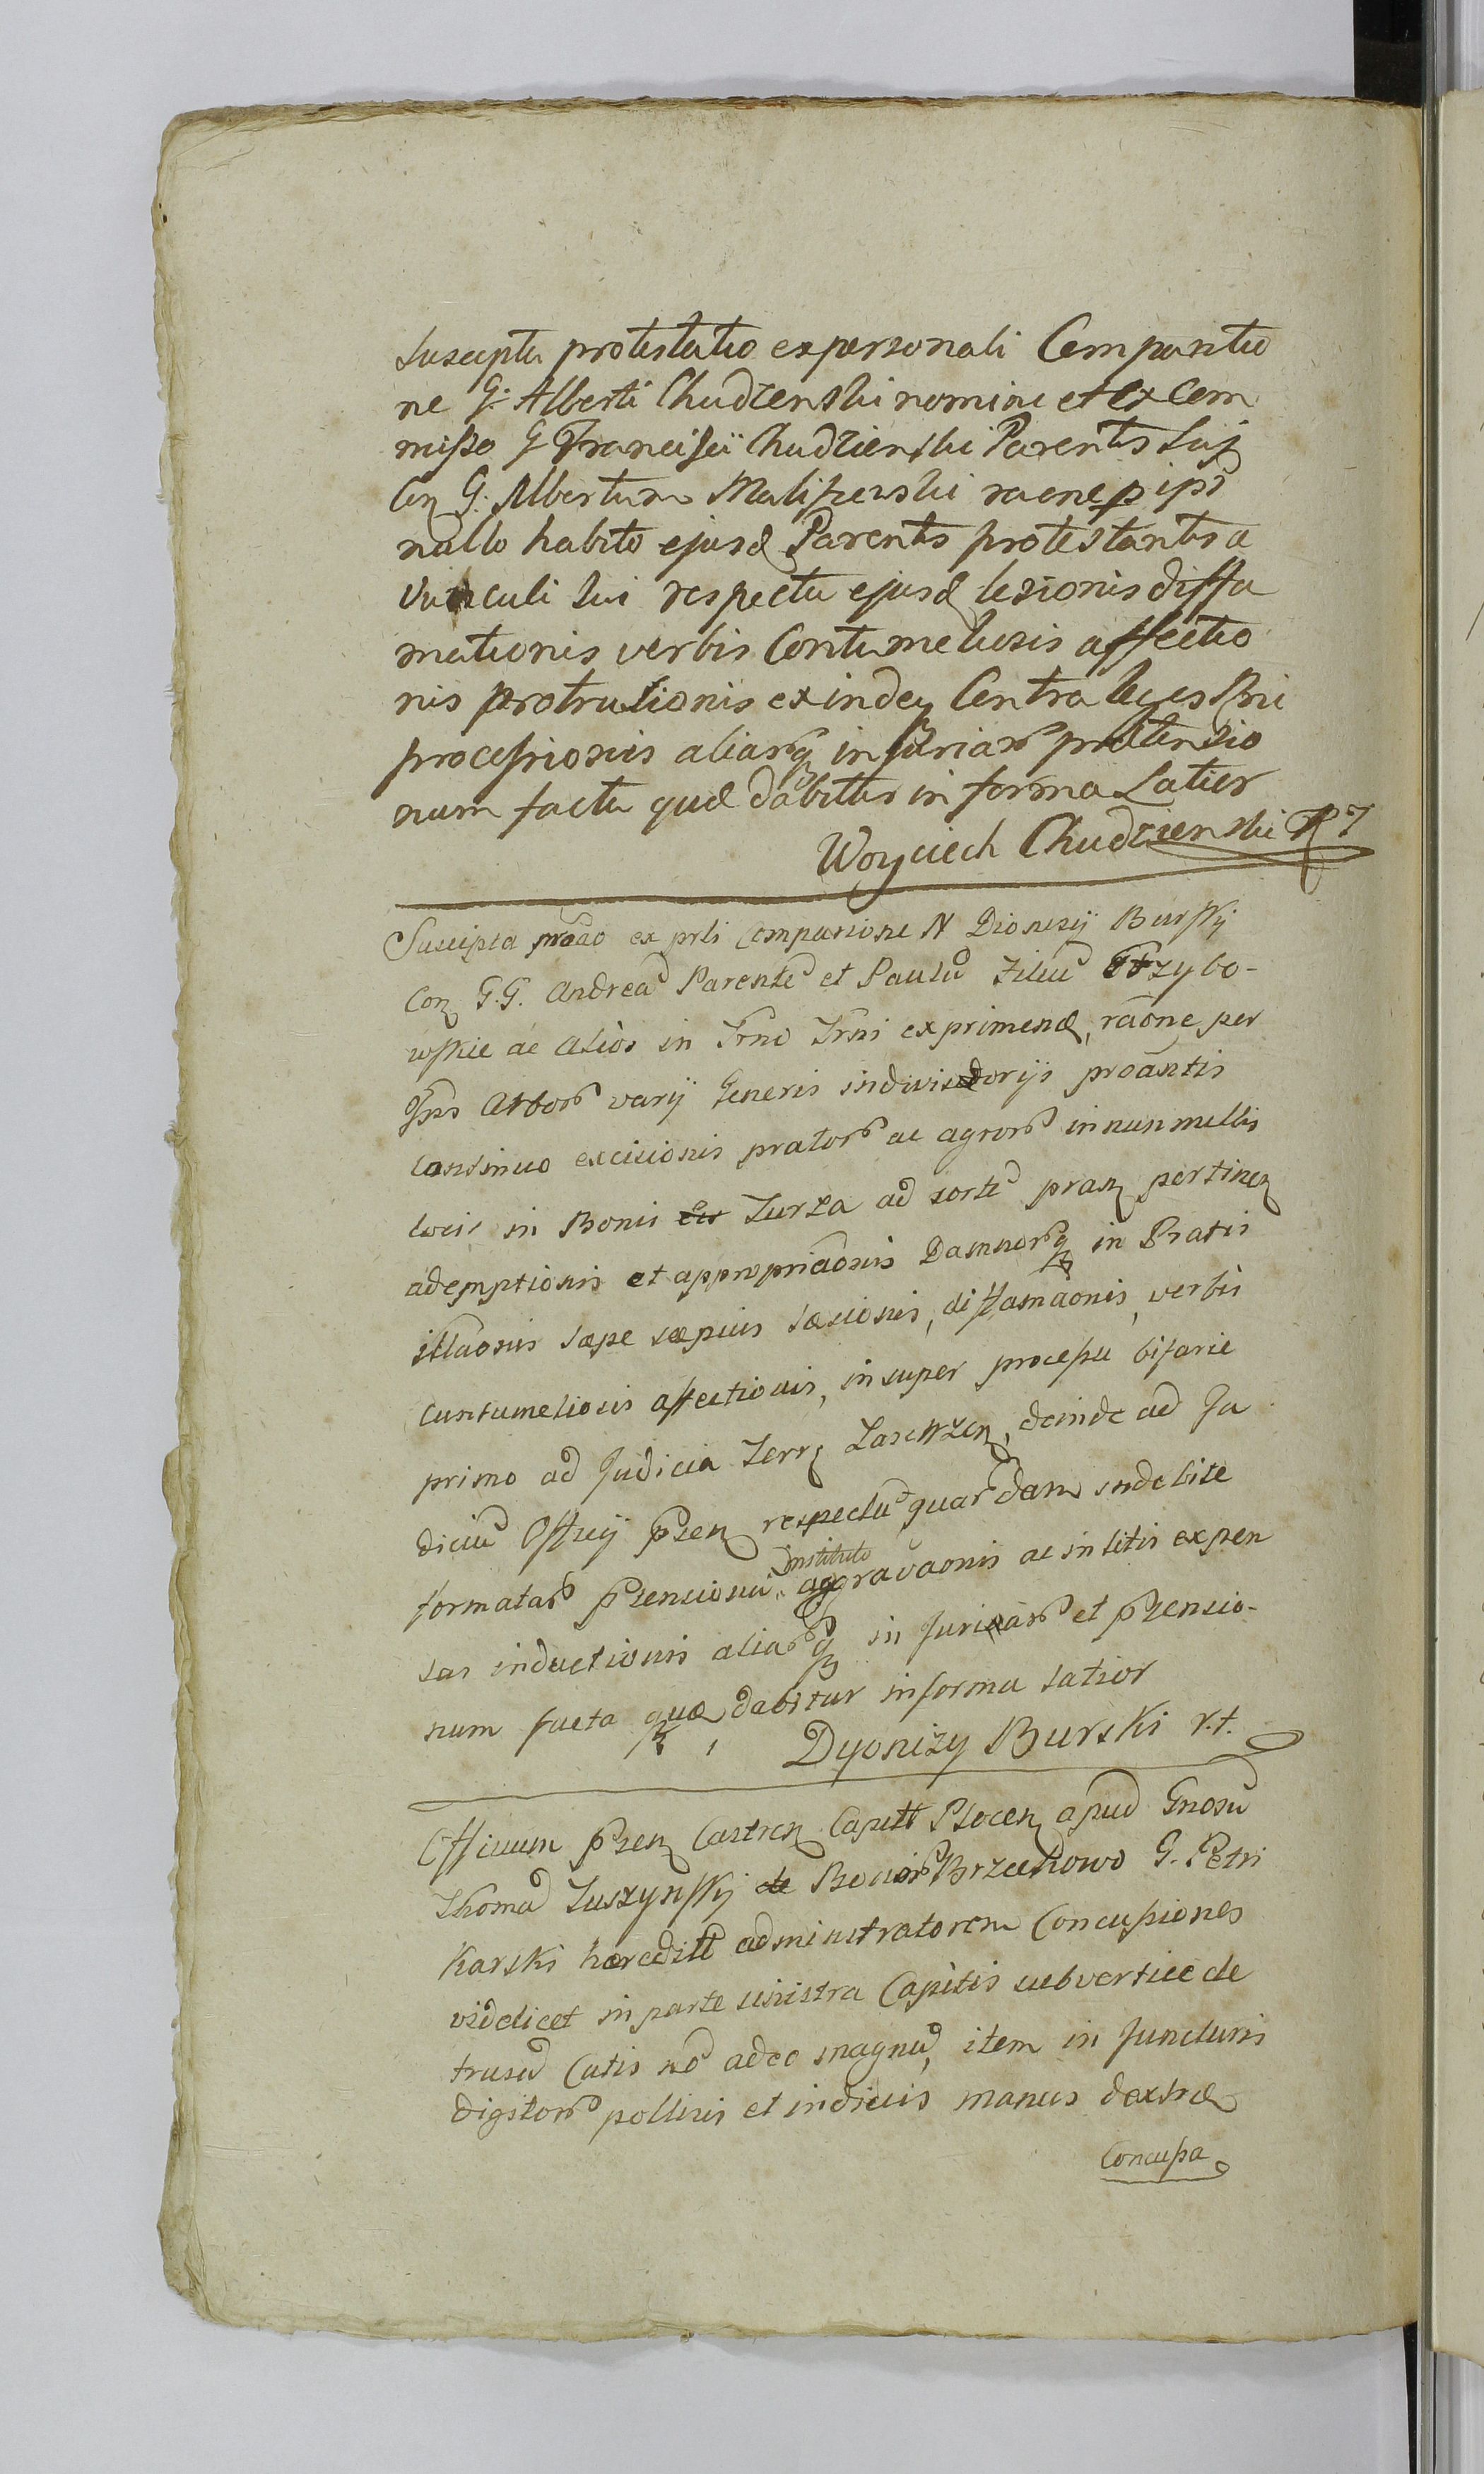 Suscepta protestatio ex personali Comparitio
ne G. Alberti Chudzenski nomine et ex Com
misso G Francisci Chudzienski Parentis Suj
Con G. Albertum Maliszewski raone p ips
nullo habito ejusd Parentis protestantis a
vunculi sui respectu ejusd lesionis diffa
mationis verbis Contumeliosis affectio
nis protrusionis exindeq Contra leges Rni
processionis aliarq injuriar prætensio
num facta quæ dabitur in forma Latior
Woyciech Chudzienski
Suscipta proão ex prli Comparicione N Dionizÿ Burskÿ
Con G.G. Andreã Parentẽ et Paulũ Filiũ Grzybo-
wskie ac alios in Trno Trni exprimend, raõne per
Ipsos Arbor varÿ Generis indivisorijs proãntis
continuo excicionis prator ac agror in nunnullis
locis in Bonis Turza ad sortẽ pran pertinen
ademptionis et appropriaõnis Damnorq in Pratis
illaõnis sæpe sæpius læsionis, diffamaõnis, verbis
contumeliosis affectionis, insuper processu bifarie
primo ad Judicia Terr Zaswzen, deinde ad Ju
diciũ Officÿ Pzen respectu quardam indebite
formatar Pzensionũ Instituto aggravaonis ac in litis expen
sas inductionis aliarq injuriar et Pzensio-
num facta quæ dabitur in forma latior
Dyonizy Burski r.t.
Officium Pzen Castren Capitt Plocen apud Gnosũ
Thomã Tuszynskÿ de Bonor Brzechowo G. Petri
Karski hæreditt administratorem Concussiones
videlicet in parte sinistra Capitis sub vertice de
trusũ Cutis nõ adeo magnũ, item in Juncturis
digitor pollicis et indicis manus dextræ
Concussa